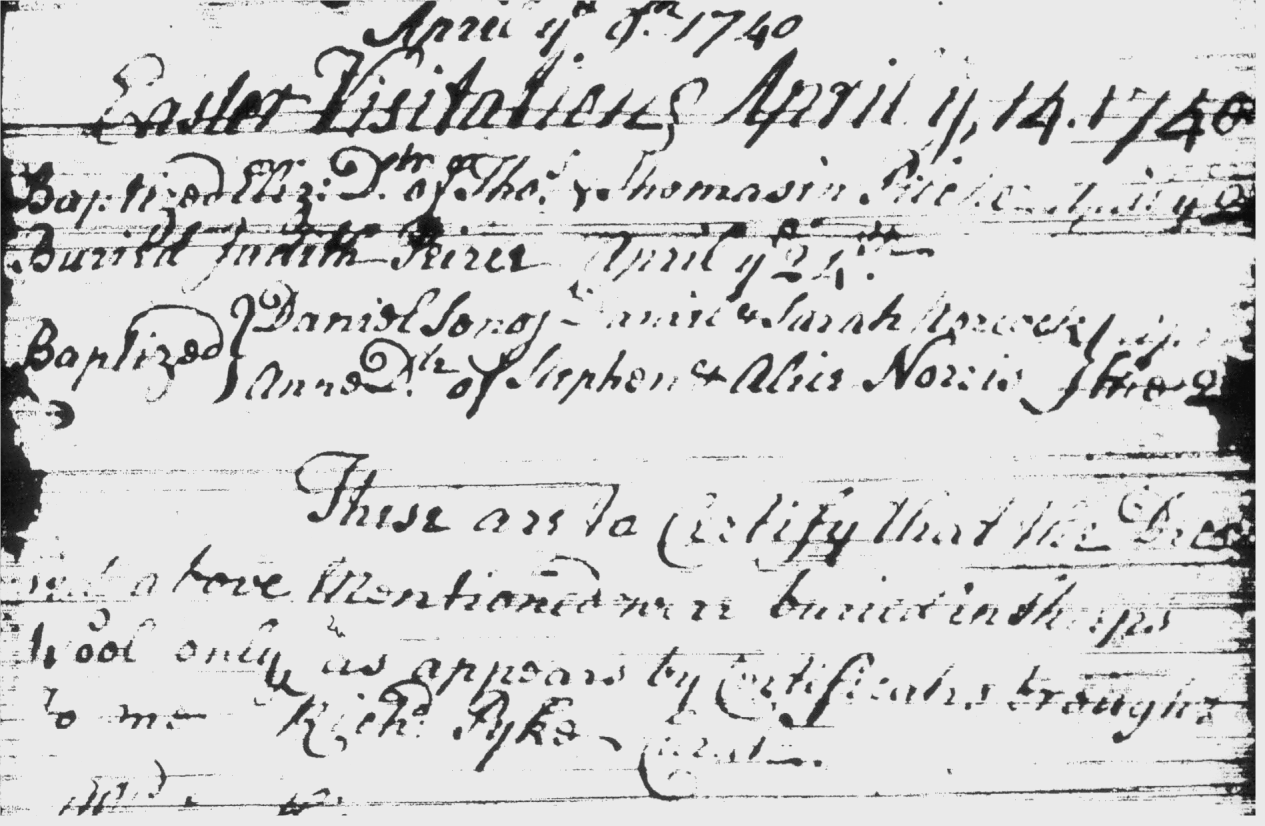 April ye 9th 1740
Easter Visitation April ye 14. 1740
Baptized Eliz: Dtr of Thos. & Thomasin April ye
Buried Judith Peirce April ye 24th.
Baptized } Daniel Son of Daniel & Sarah Norcock
Anne Dtr. of Stephen & Alice Norris the 2
These are to Certify that the Decea
sed above Mentioned were buried in Sheeps
Wool only as appears by Certificates brought
to me Richd. Pyke Curat